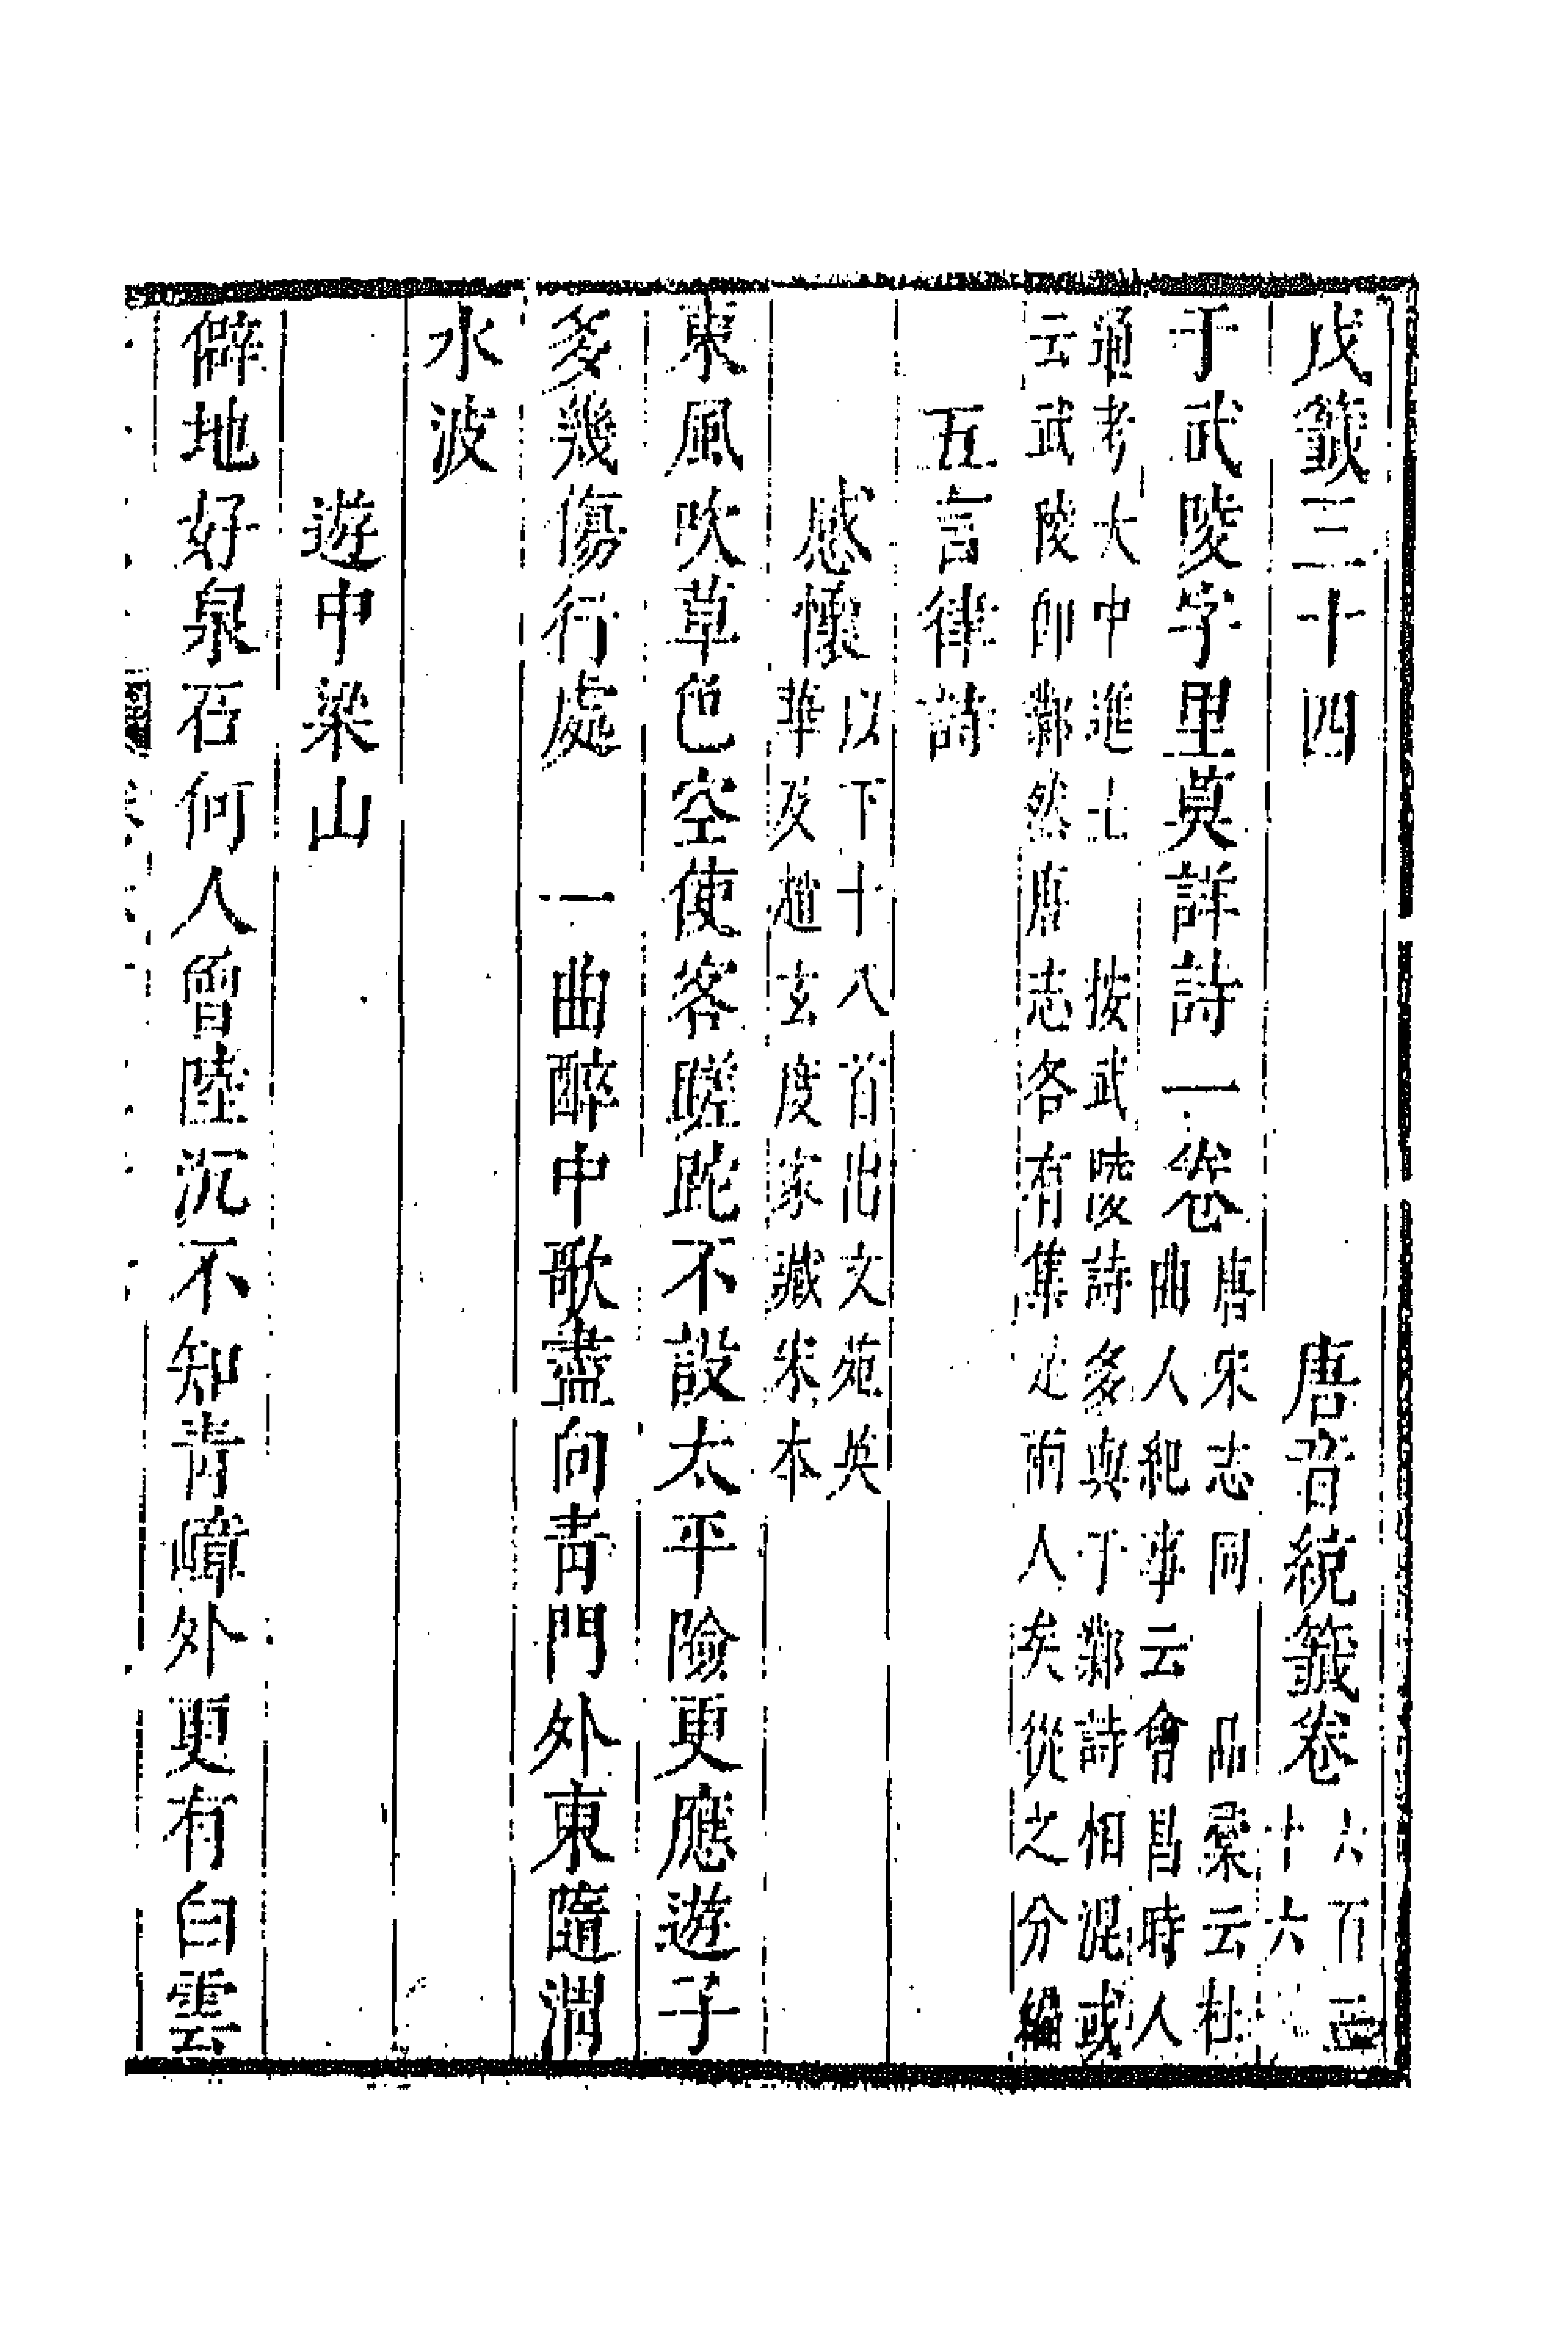 戊籤三十四　唐音統籤卷六百五十六
于武陵字里莫詳詩一卷唐宋志同　品彙云杜曲人紀事云會昌時人
通考大中進士　按武陵詩多與于鄴詩相混或云武陵即鄴然唐志各有集是兩人矣從之分編
五言律詩
感懷以下十八首出文苑英華及趙玄度家藏宋本
東風吹草色空使客蹉跎不設太平險更應遊子
多幾傷行處　一曲醉中歌盡向青門外東隨渭
水波
遊中梁山
僻地好泉石何人曾陸沉不知青嶂外更有白雲